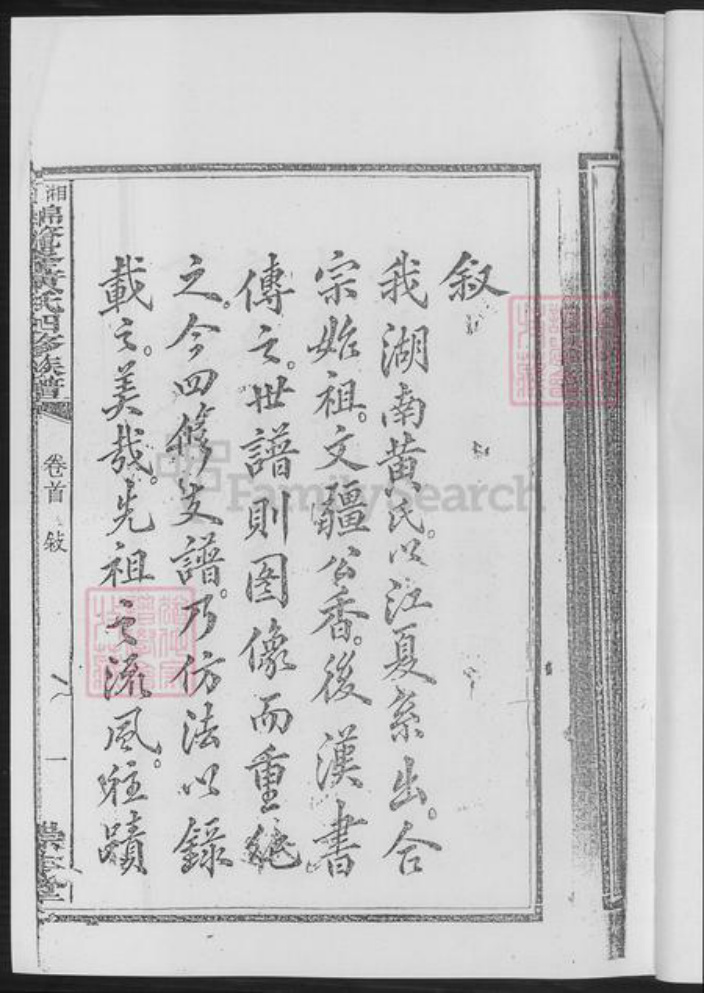 叙
我湖南黄氏。以江夏系出。合
宗始祖。文疆公香。後漢書
傳之。世譜則图像而重絶
之。今四修支譜。乃仿法以録
載之。美哉。先祖之流風。往蹟
湘
黄氏四修族譜
卷首
敍
一
堂
FamilySearch